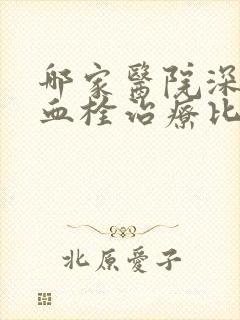 邮家醫院深
血栓治療比
北原愛子